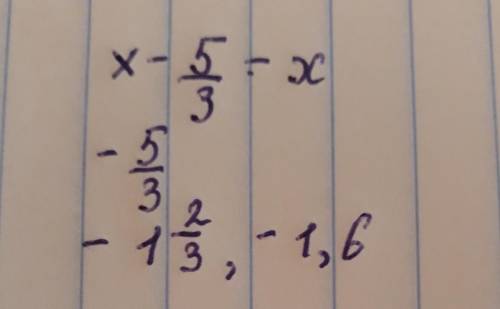 x - 5/3 - x
- 5/3
- 1 2/3, - 1,6